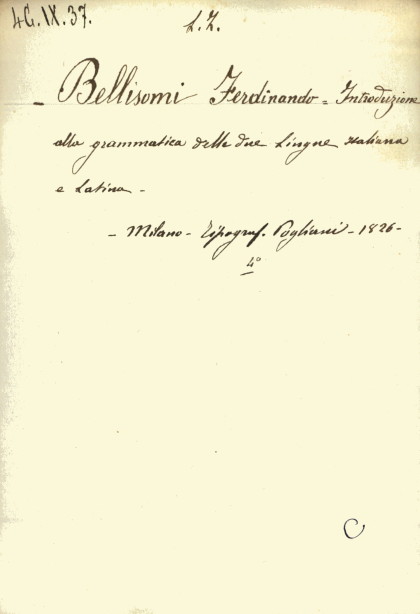 4G.IX.37.
L.Z.
- Bellisomi Ferdinando = Introduzione
alla grammatica delle due Lingue Italiana
e Latina -
- Milano - Tipograf. Pogliani - 1826 -
4°
C